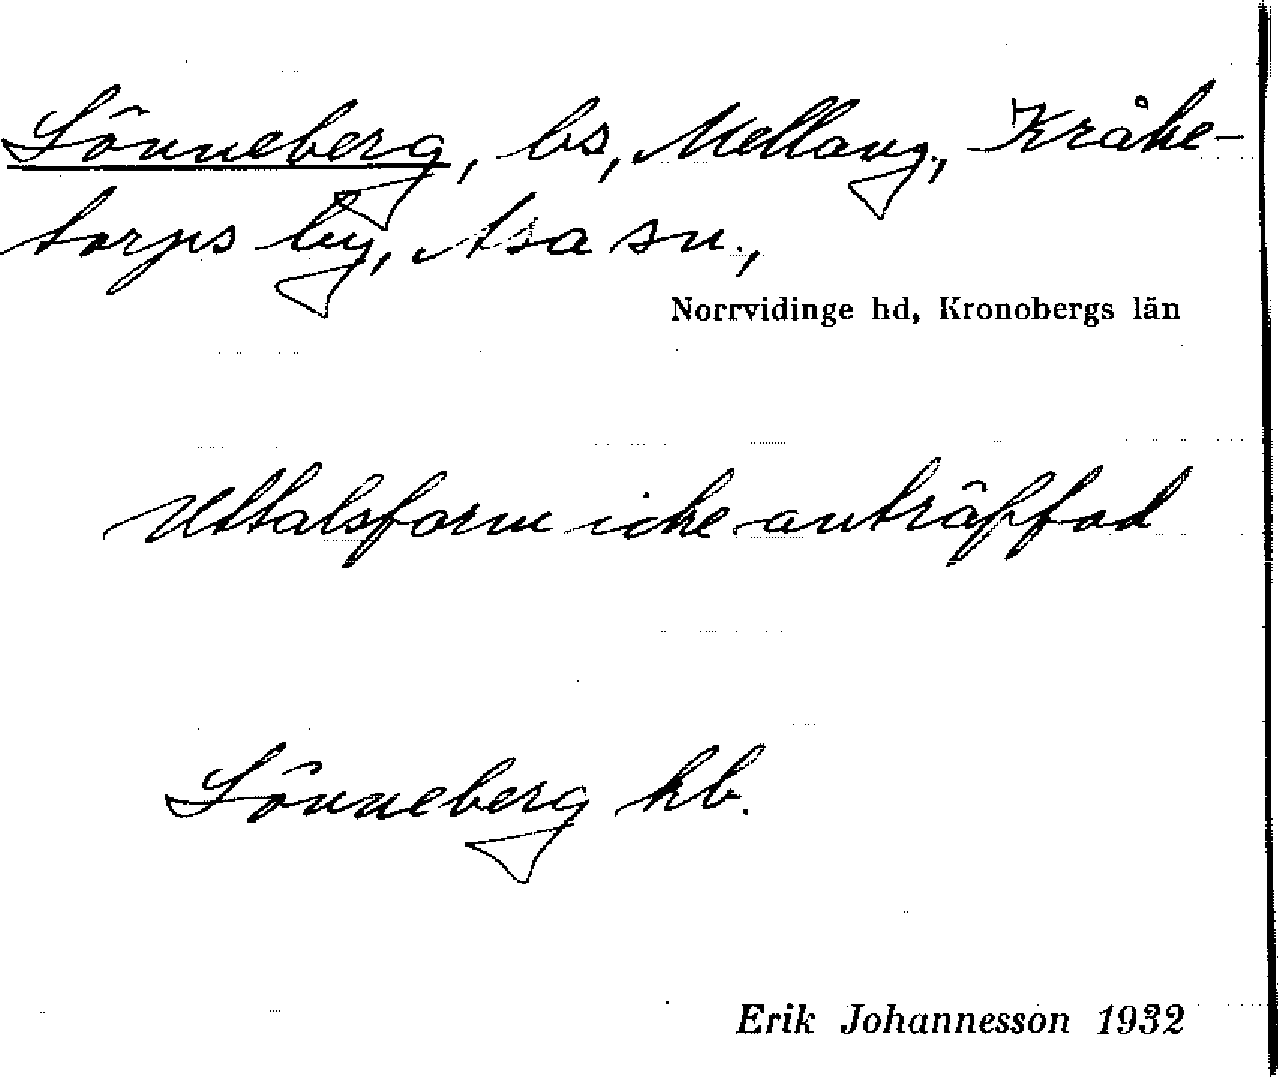 Lönneberg, bs, Mellang., Kråke-
torps by, Asa sn.,
Norrvidinge hd, Kronobergs län
Uttalsform icke anträffad
Lönneberg hb.
Erik Johannesson 1932